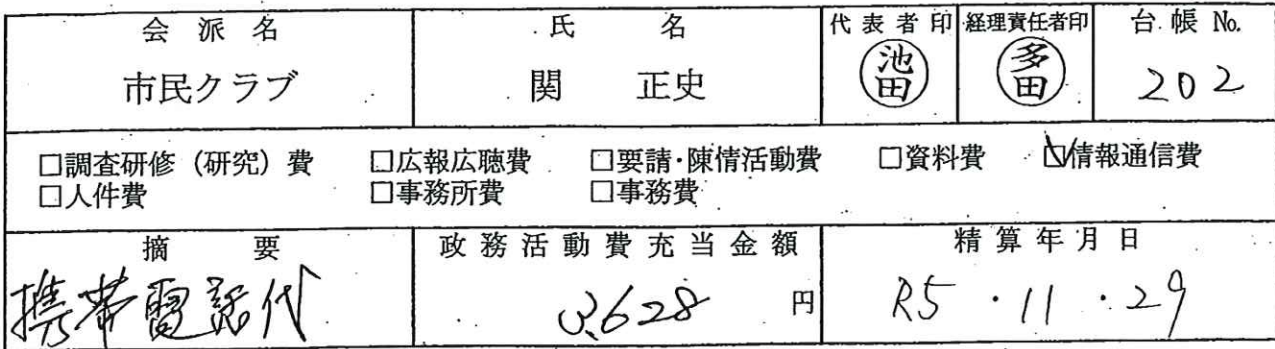 会派名 氏名 代表者印 経理責任者印 台帳 No.
市民クラブ 関 正史 池田 多田 202
□調査研修（研究）費 □広報広聴費 □要請・陳情活動費 □資料費 ☑情報通信費
□人件費 □事務所費 □事務費
摘要 政務活動費充当金額 精算年月日
携帯電話代 3,628 円 R5・11・29